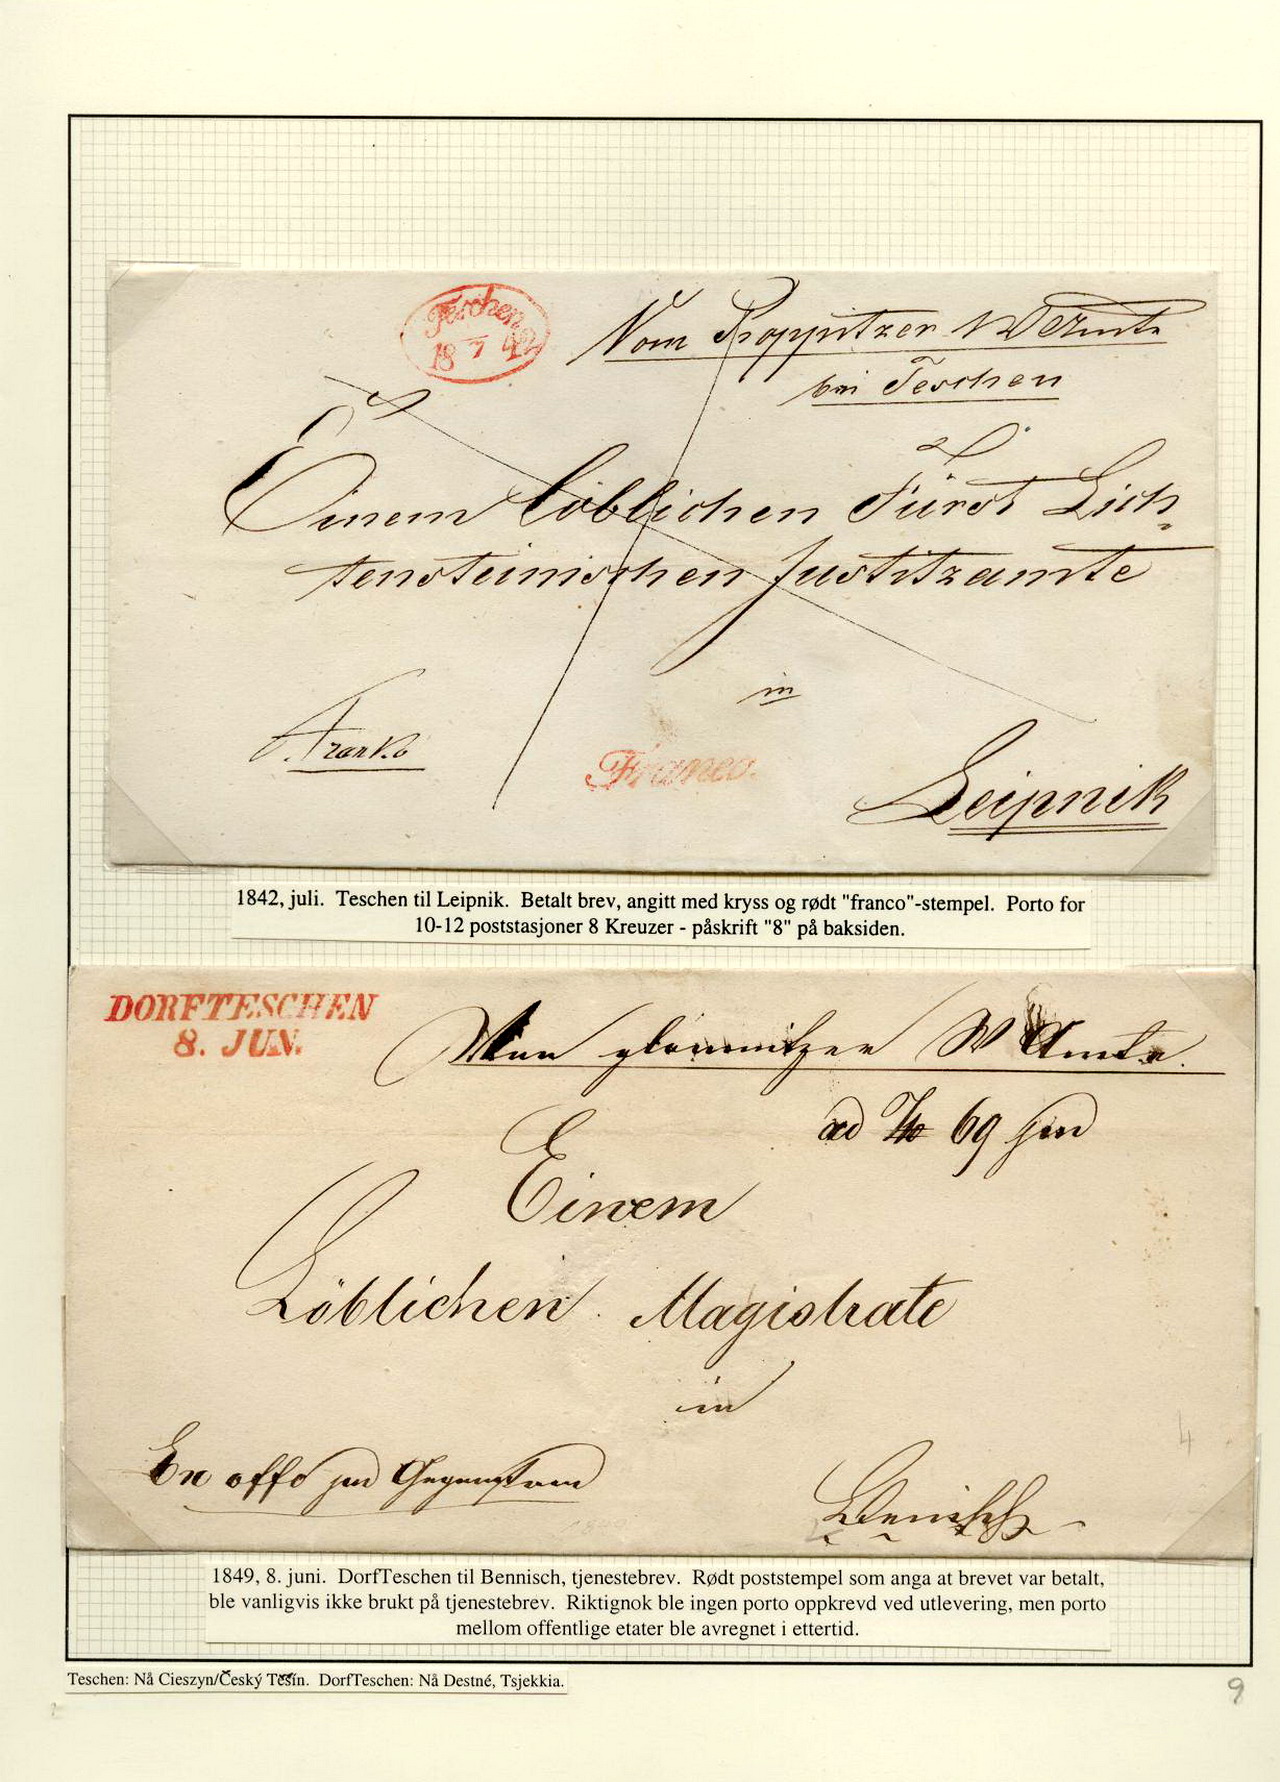 Teschen
18 7 42
Vom Roppitzer Weramte
bei Teschen
Einem löblichen Fürst Lich-
tensteinischen Justitzamte
in
Franko
Franco.
Leipnik
1842, juli. Teschen til Leipnik. Betalt brev, angitt med kryss og rødt "franco"-stempel. Porto for
10-12 poststasjoner 8 Kreuzer - påskrift "8" på baksiden.
DORFTESCHEN
8. JUN.
W Amte.
ad 69
Einem
Löblichen Magistrate
in
4
Ex offo
Bennisch
1849, 8. juni. DorfTeschen til Bennisch, tjenestebrev. Rødt poststempel som anga at brevet var betalt,
ble vanligvis ikke brukt på tjenestebrev. Riktignok ble ingen porto oppkrevd ved utlevering, men porto
mellom offentlige etater ble avregnet i ettertid.
Teschen: Nå Cieszyn/Český Těšín. DorfTeschen: Nå Destné, Tsjekkia.
9